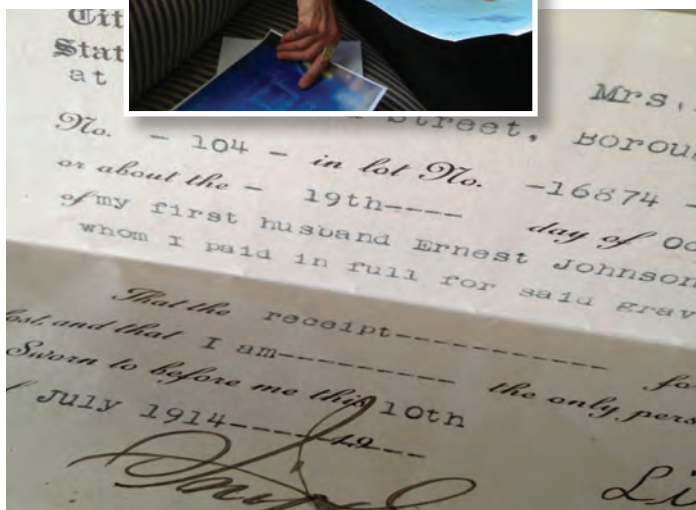 Cit
Stat
at Mrs.
Street, Borou
No. - 104 - in lot No. -16874 -
or about the - 19th---- day of Oc
of my first husband Ernest Johnson
whom I paid in full for said grav
That the receipt----------- fo
lost, and that I am---------- the only pers
Sworn to before me this 10th
f July 1914------19---
Li